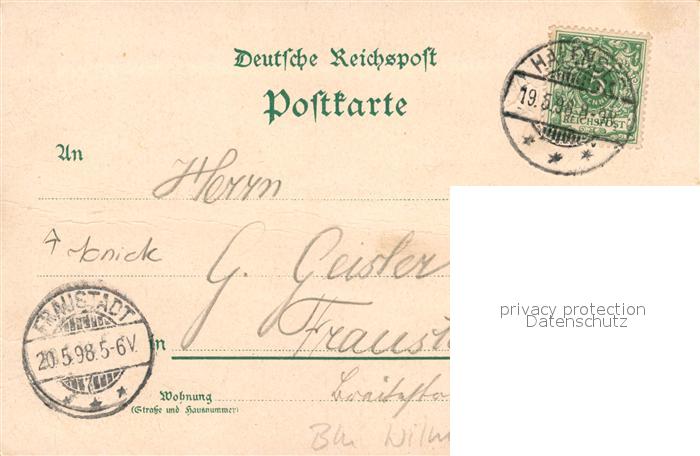 Deutsche Reichspost
Postkarte
5
REICHSPOST
19.5.98
An
Herrn
knick
G. Geisler
FRAUSTADT
20.5.98.5-6V.
in
Fraust
Wohnung
(Straße und Hausnummer)
privacy protection
Datenschutz